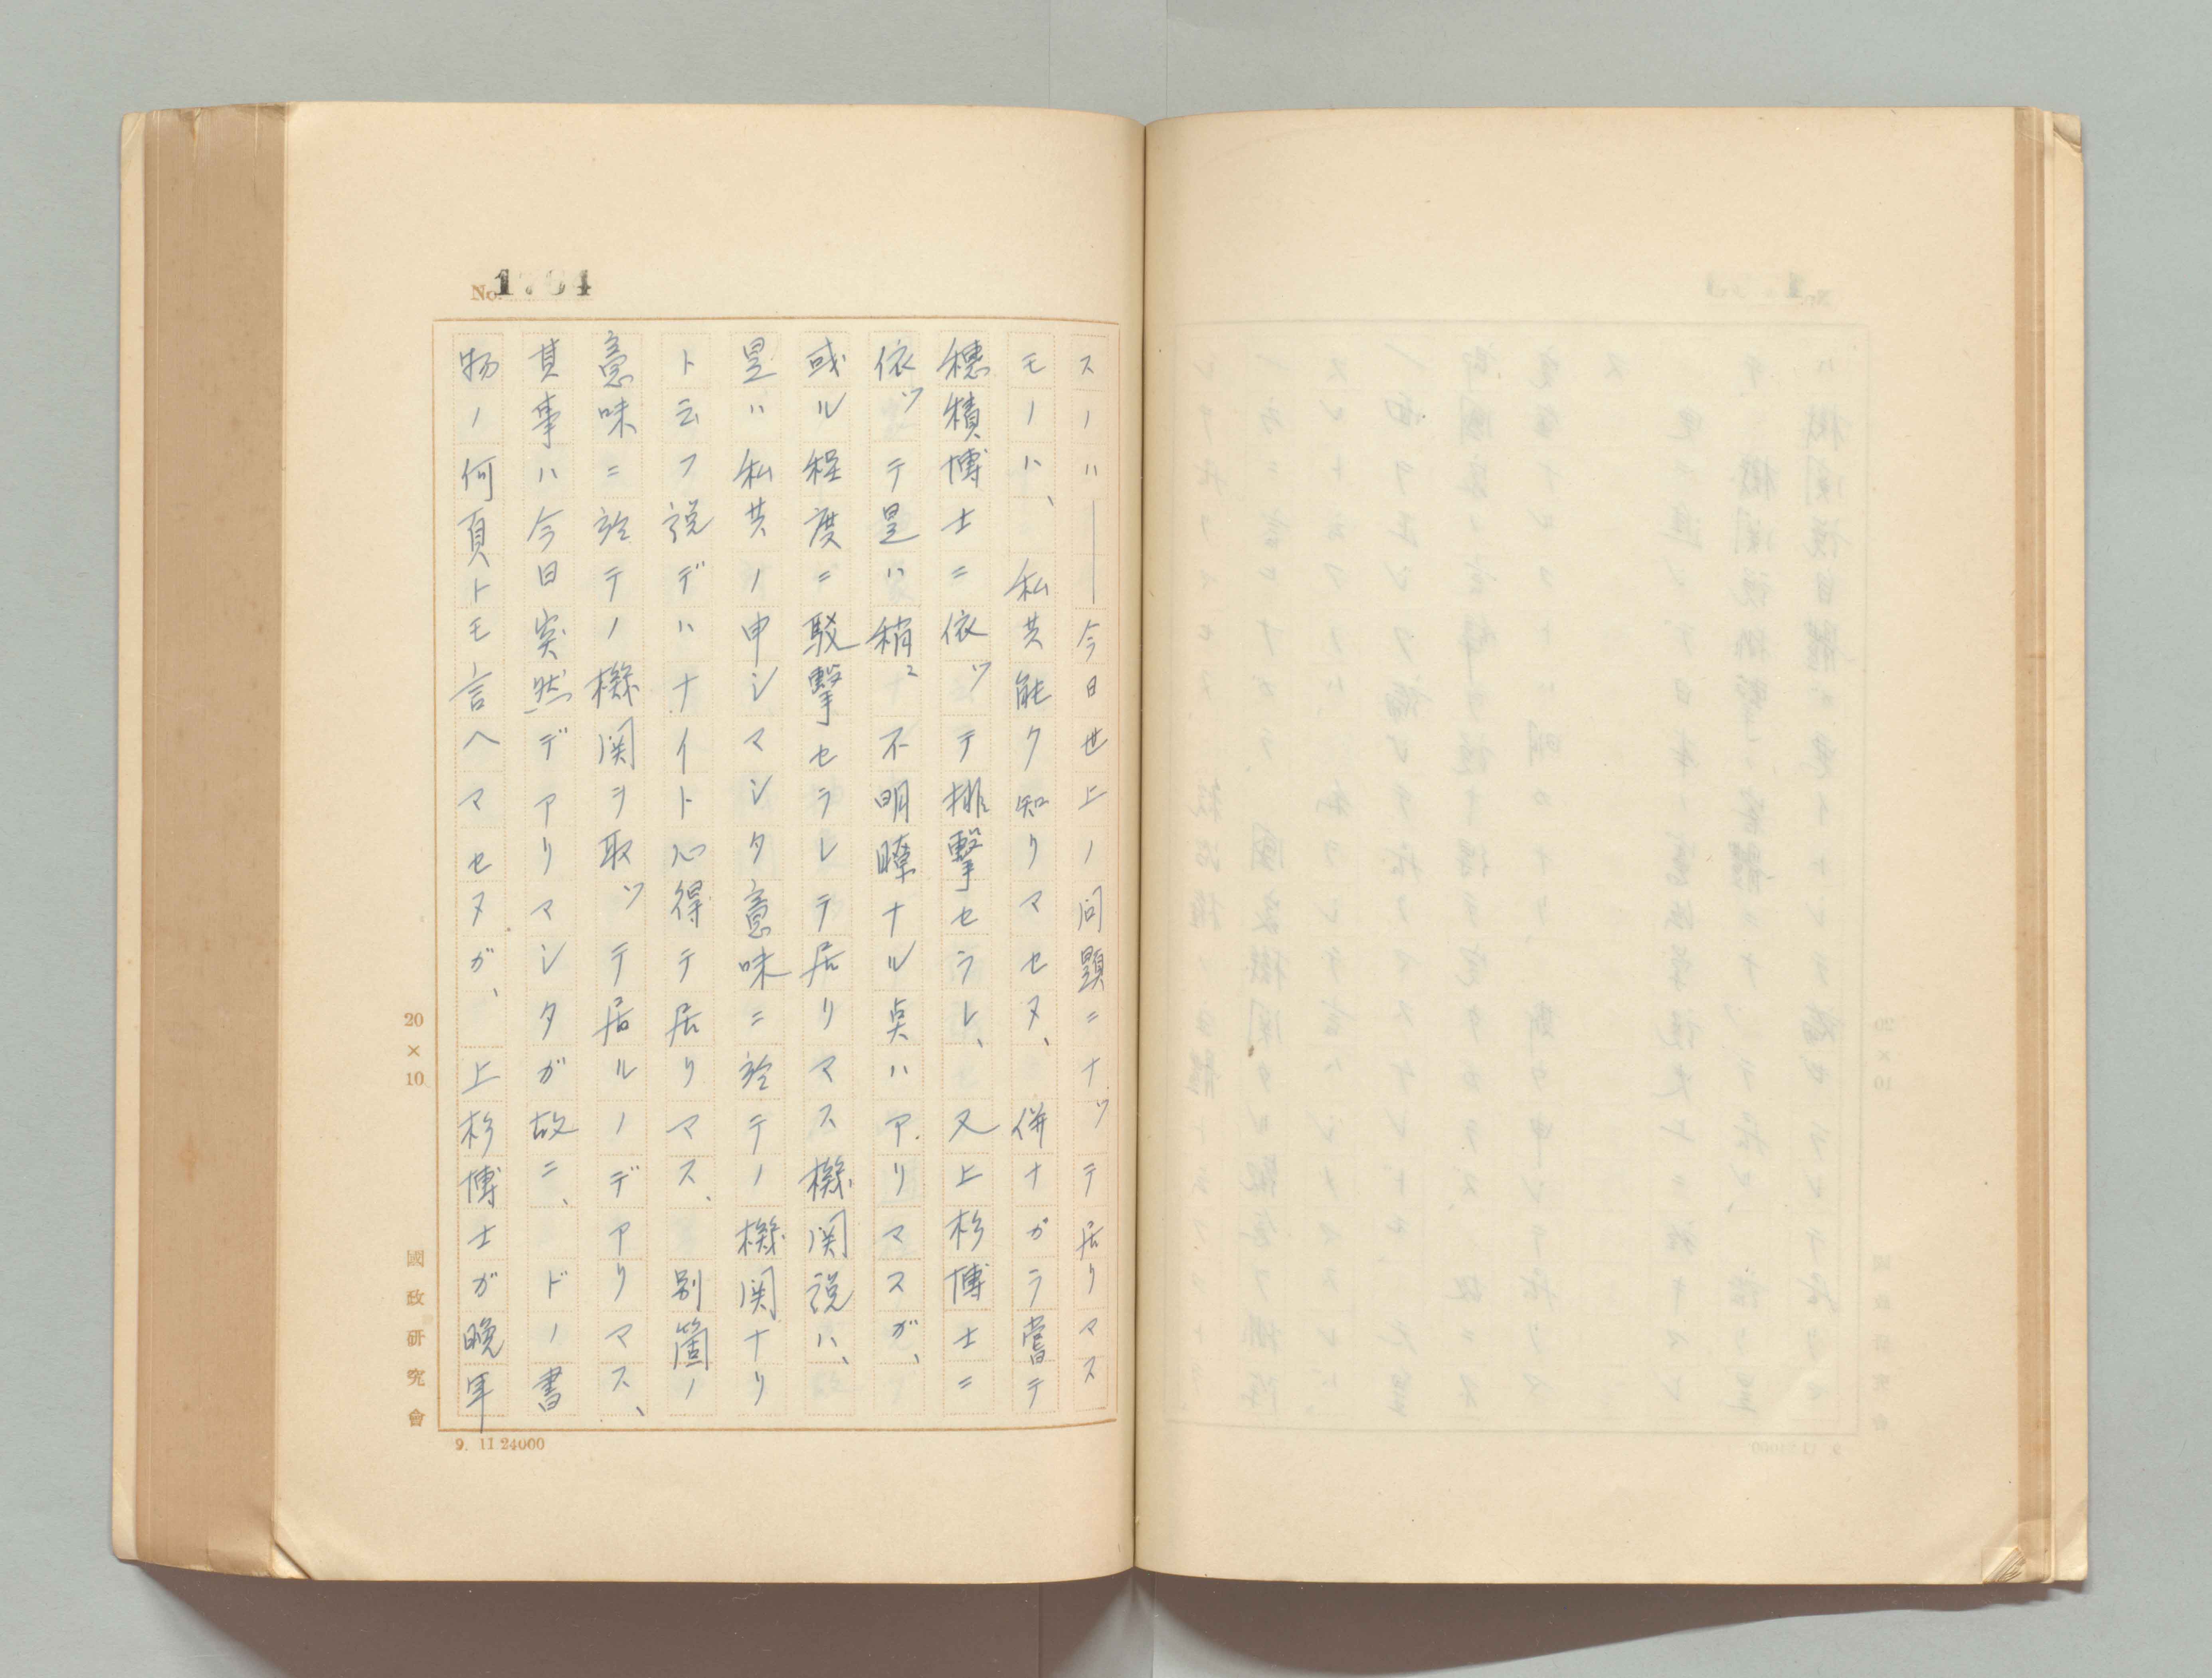 No. 1794
スノハ――今日世上ノ問題ニナッテ居リマス
モノハ、私共能ク知リマセヌ、併ナガラ嘗テ
穗積博士ニ依ッテ排擊セラレ、又上杉博士ニ
依ッテ是ハ稍〻不明瞭ナル点ハアリマスガ、
或ル程度ニ駁擊セラレテ居リマス機関說ハ、
是ハ私共ノ申シマシタ意味ニ於テノ機関ナリ
ト云フ說デハナイト心得テ居リマス、別箇ノ
意味ニ於テノ機関ヲ取ッテ居ルノデアリマス、
其事ハ今日突然デアリマシタガ故ニ、ドノ書
物ノ何頁トモ言ヘマセヌガ、上杉博士ガ晚年
20×10
國政研究會
9. 11 24000